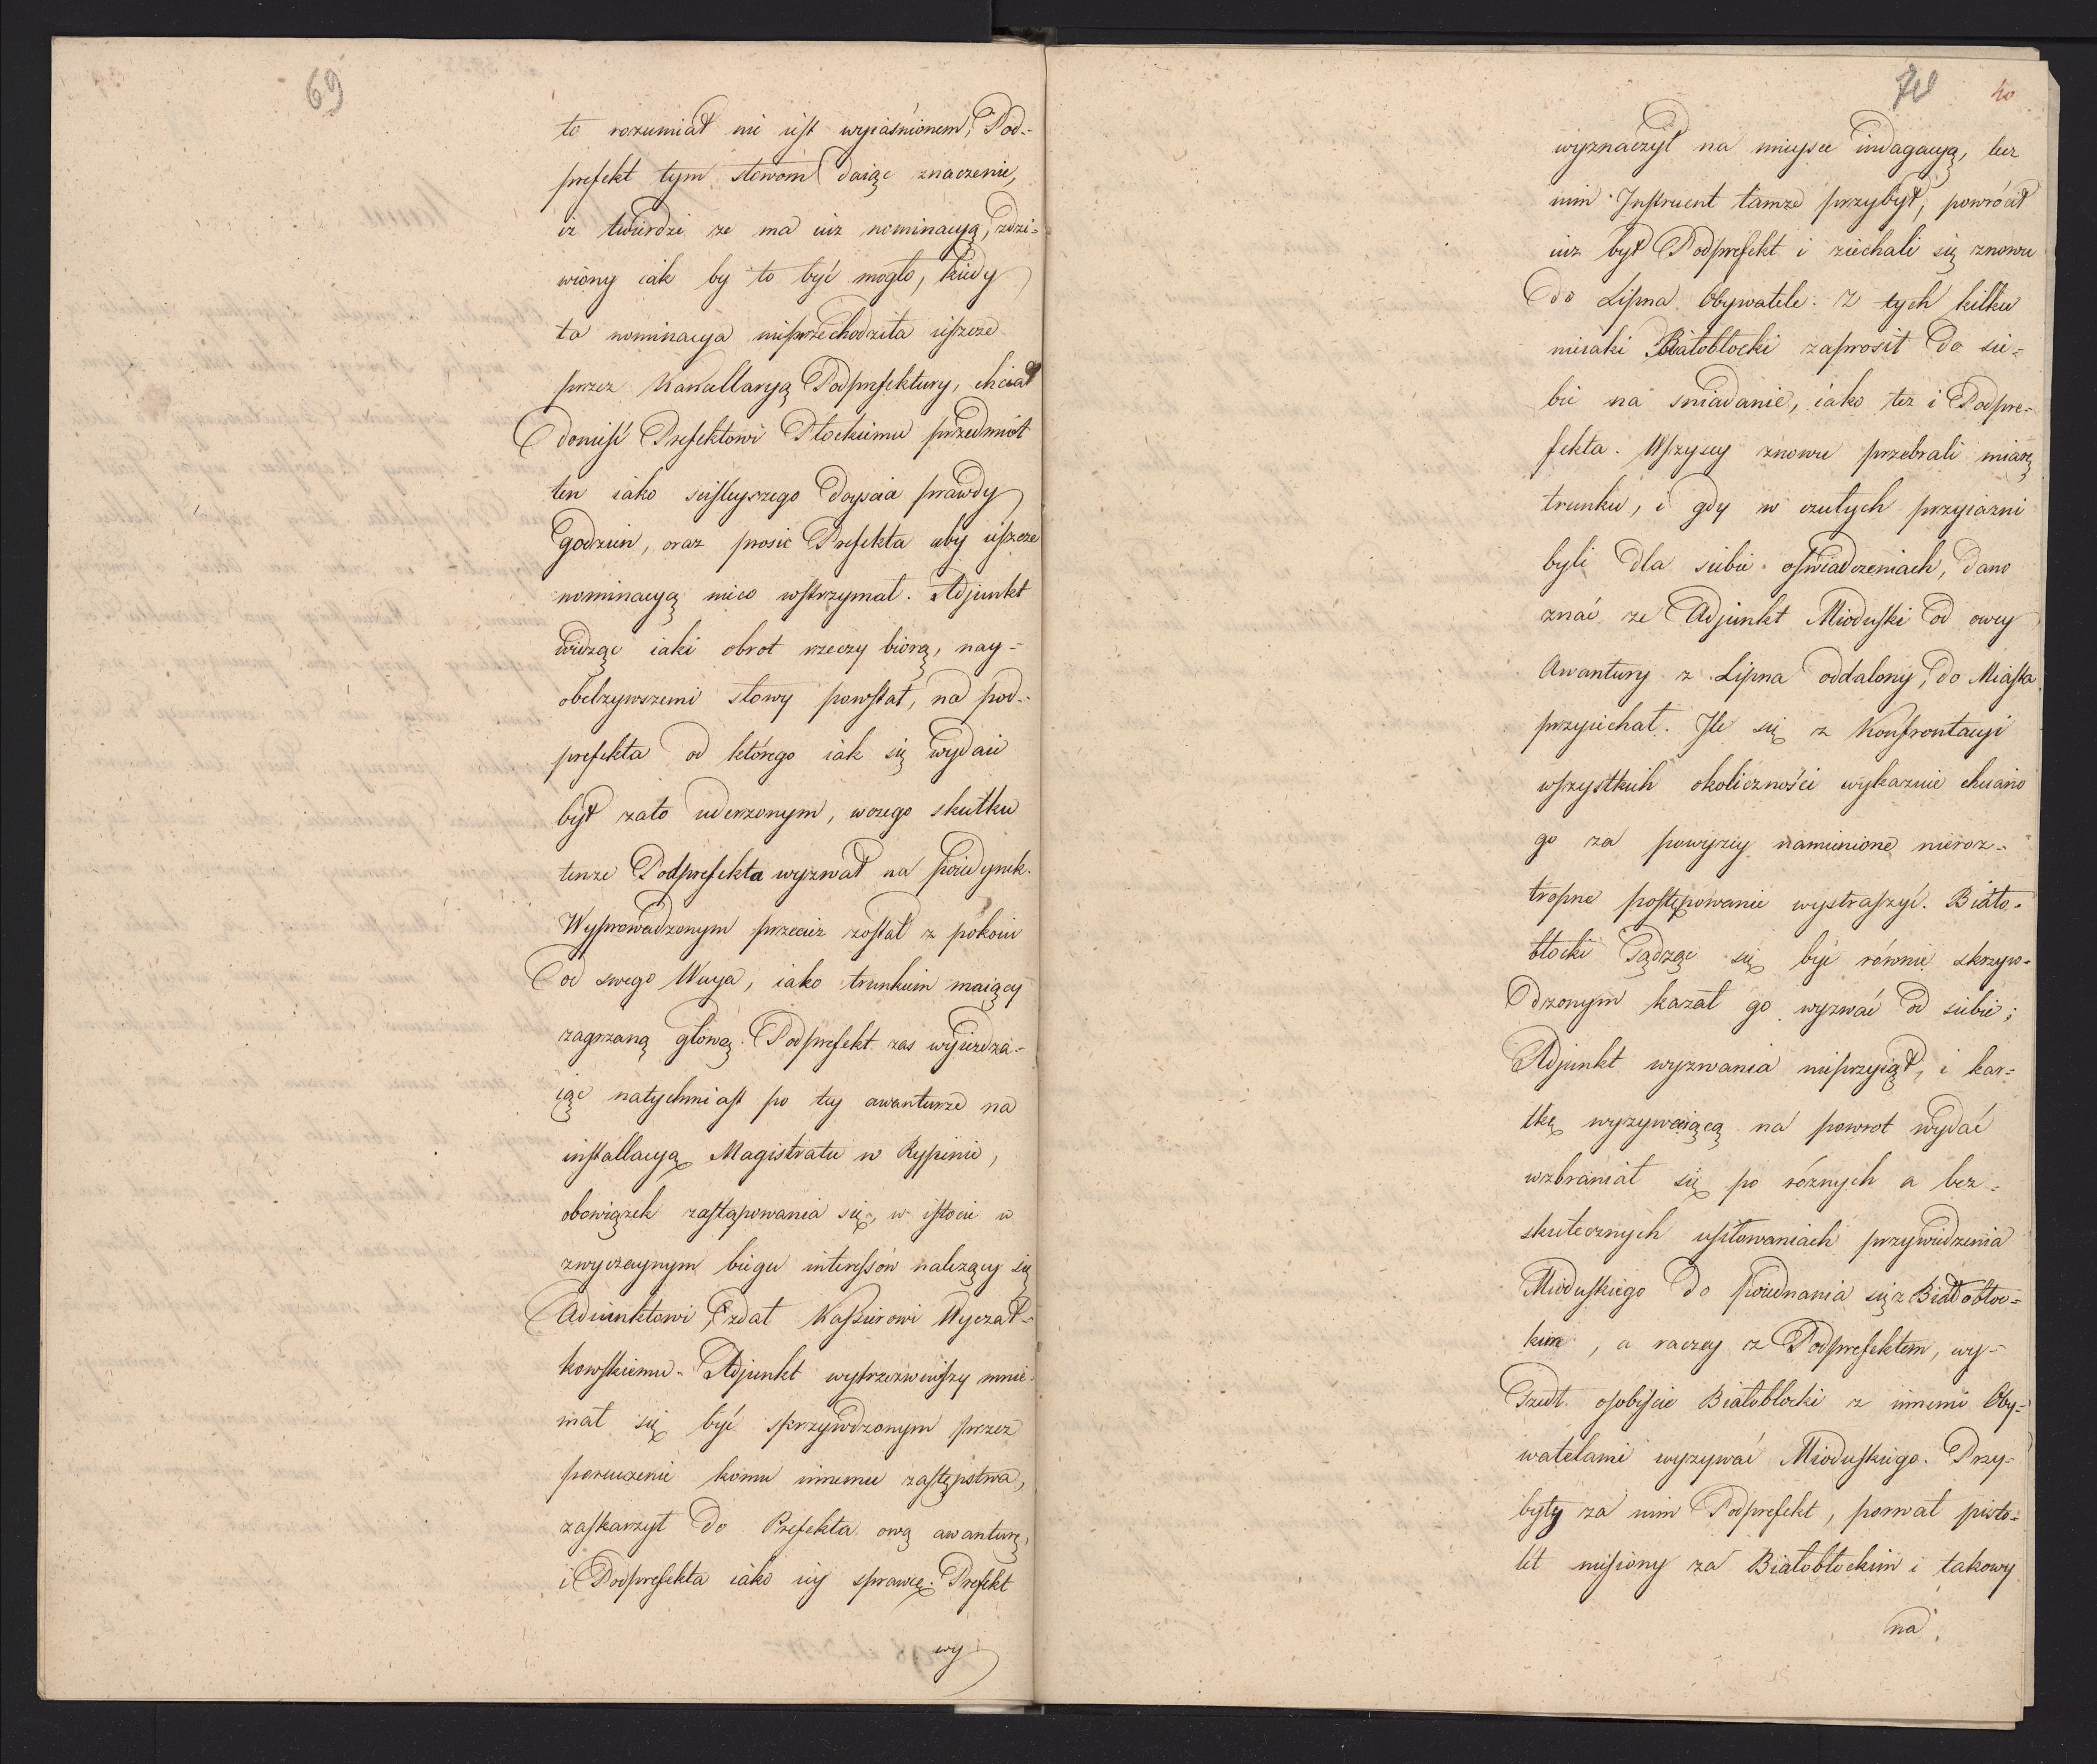 69
to rozumiał nie iest wyiaśnionem, Pod-
prefekt tym słowom daiąc znaczenie,
iż twierdzi że ma iuż nominacyą, zdzi-
wiony iak by to być mogło, kiedy
ta nominacya nieprzechodziła ieszcze
przez Kancellaryą Podprefektury, chciał
donieść Prefektowi Płockiemu przedmiot
ten iako ściśleyszego doyścia prawdy
godzien, oraz prosić Prefekta aby ieszcze
nominacyą nieco wstrzymał. Adjunkt
widząc iaki obrot rzeczy biorą, nay-
obelżywszemi słowy powstał, na pod-
prefekta od którego iak się wydaie
był zato uderzonym, w czego skutku
tenże Podprefekta wyzwał na poiedynek.
Wyprowadzonym przecież został z pokoiu
od swego Wuya, iako trunkiem maiący
zagrzaną głowę. Podprefekt zas wyieżdża-
iąc natychmiast po tey awanturze na
installacyą Magistratu w Rypinie,
obowiązek zastąpowania się, w istocie w
zwyczaynym biegu interessów należący się
Adiunktowi, zdał Kassierowi Wyczał-
kowskiemu. Adjunkt wytrzeźwiwszy mnie-
mał się być skrzywdzonym przez
poruczenie komu innemu zastępstwa,
zaskarżył do Prefekta ową awanturę,
i Podprefekta iako iey sprawcę. Prefekt
wy
70 40
wyznaczył na mieysce indagacyą, lecz
nim Instruent tamże przybył, powrócił
iuż był Podprefekt i ziechali się znowu
do Lipna Obywatele. Z tych kilku
nieiaki Białobłocki zaprosił do sie-
bie na śniadanie, iako też i Podpre-
fekta. Wszyscy znowu przebrali miarę
trunku, i gdy w czułych przyiaźni
byli dla siebie oświadczeniach, dano
znać że Adjunkt Mioduski od owey
Awantury z Lipna oddalony, do Miasta
przyiechał. Ile się z Konfrontacyi
wszystkich okoliczności wykazuie chciano
go za powyżey namienione nieroz-
tropne postępowanie wystraszyć. Biało-
błocki sądząc się być równie skrzyw-
dzonym kazał go wyzwać od siebie;
Adjunkt wyzwania nieprzyiął, i kar-
tkę wyzywaiącą na powrot wydać
wzbraniał się po różnych a bez-
skutecznych usiłowaniach przywiedzenia
Mioduskiego do poiednania się z Białobłoc-
kim, a raczey z Podprefektem, wy-
szedł osobiście Białobłocki z innemi Oby-
watelami wyzywać Mioduskiego. Przy-
były za nim Podprefekt, porwał pisto-
let niesiony za Białobłockim i takowy
na